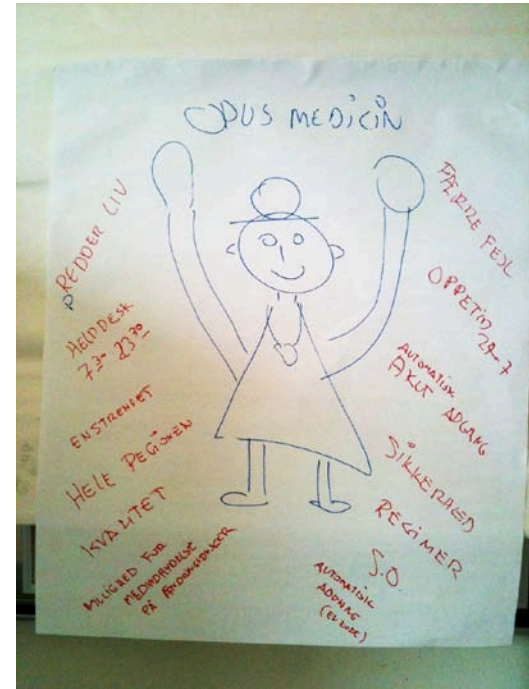 OPUS MEDICIN
REDDER LIV
HELPDESK
7.30 23.30
ENSTRENGET
HELE REGIONEN
KVALITET
MULIGHED FOR
MEDINDFLYDELSE
PÅ
FÆRRE FEJL
OPPETID
24-7
AUTOMATISK
AKUT ADGANG
SIKKERHED
REGIMER
S.O.
AUTOMATISK
ADGANG